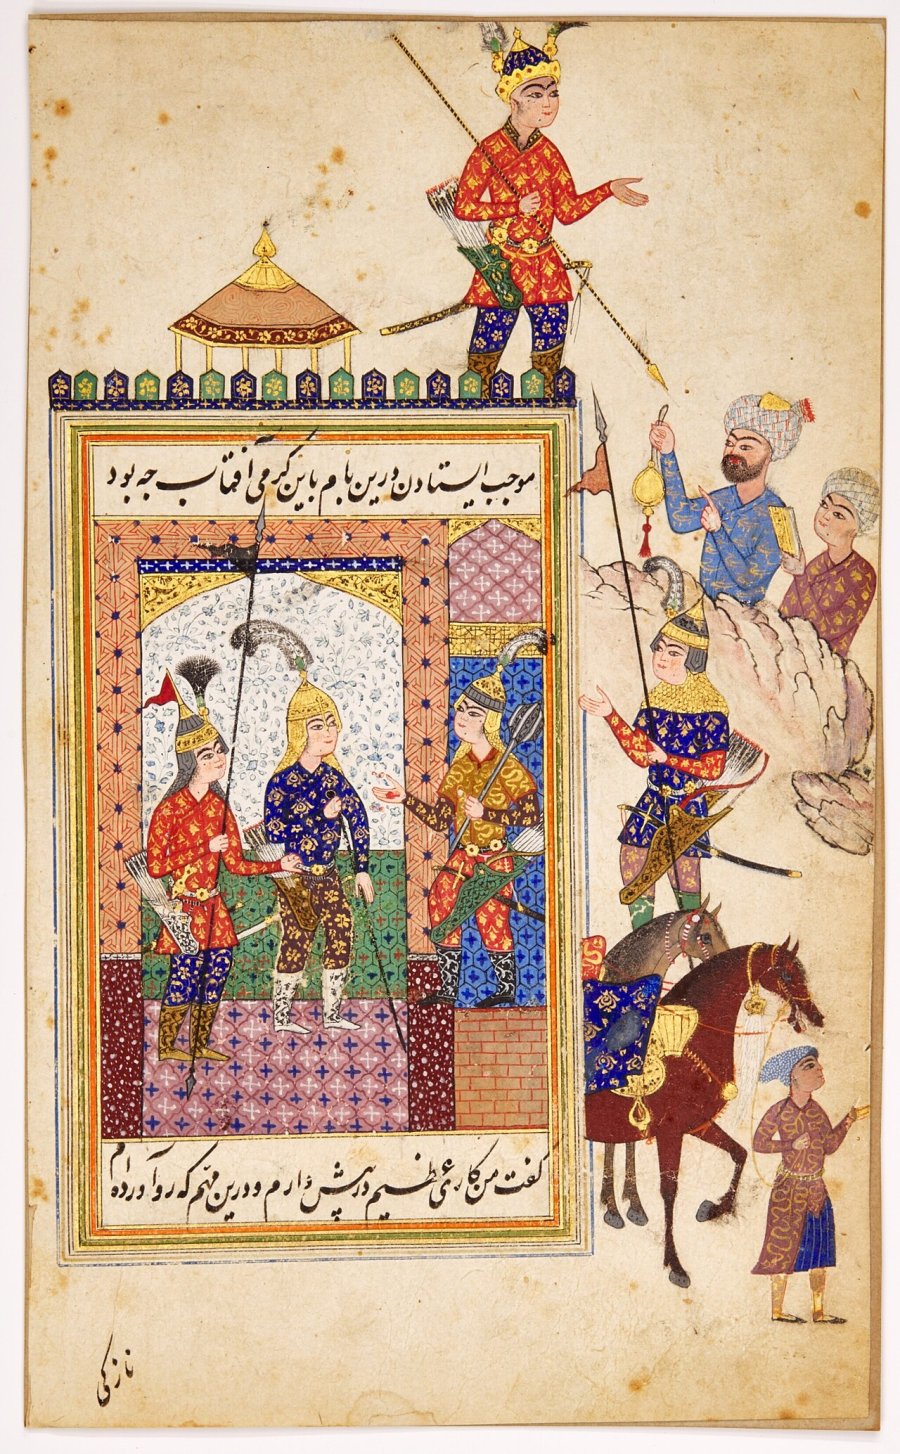 موجب ایستادن درین بام باین گرمی آفتاب چه بود
گفت من کاری عظیم در پیش دارم و درین مهم که رو آورده ام
نازکی